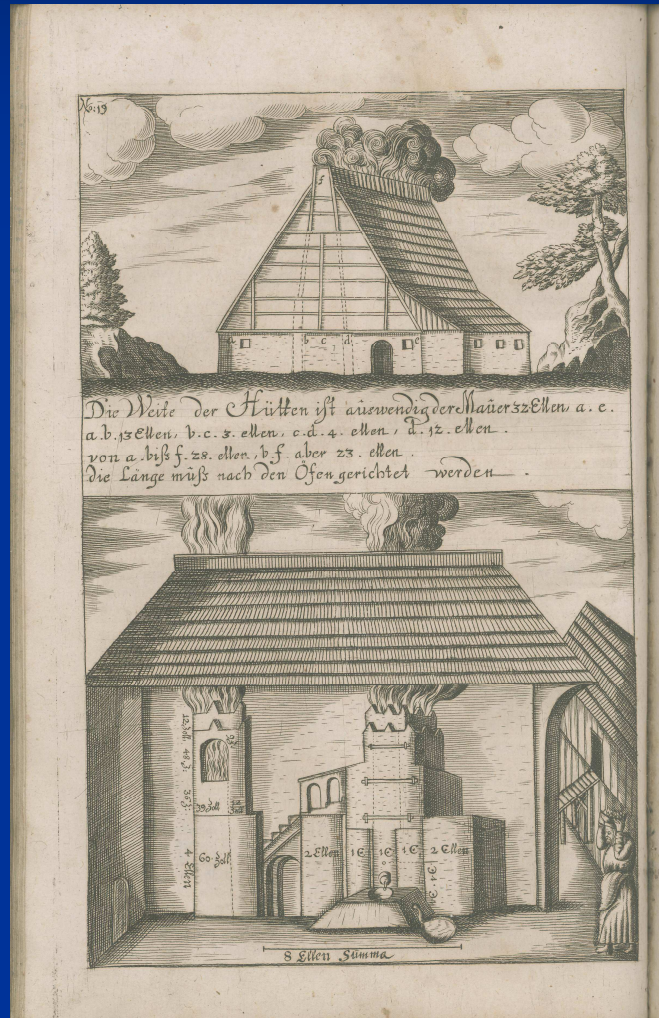 No: 19
f
a b c d e
Die Weite der Hütten ist auswendig der Mauer 32 Ellen, a. e.
a. b. 13 Ellen, b. c. 3. ellen, c. d. 4. ellen, d. 12. ellen.
von a. biß f. 28. ellen, b. f. aber 23. ellen.
die Länge muß nach den Öfen gerichtet werden.
12 Zoll 48 Z. 36 Z. 4 Ellen
39 Zoll
60 Zoll
2 Ellen 1 E 1 E 1 E 2 Ellen
34. 3.
8 Ellen Summa